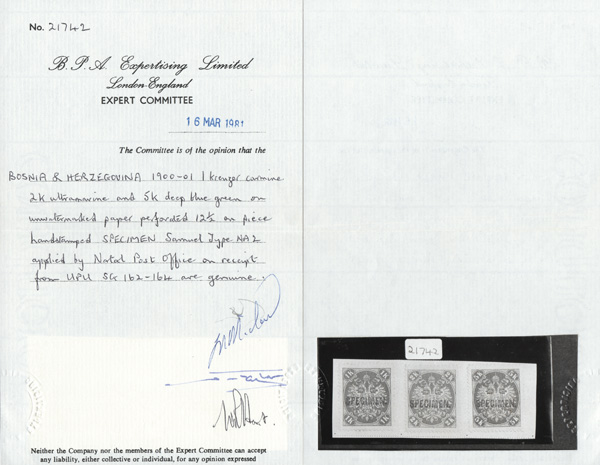 No. 21742
B. P. A. Expertising Limited
London-England
EXPERT COMMITTEE
16 MAR 1981
The Committee is of the opinion that the
BOSNIA & HERZEGOVINA 1900-01 1 kreuzer carmine
2k ultramarine and 5k deep blue green on
unwatermarked paper perforated 12½ on piece
handstamped SPECIMEN Samuel Type NA2
applied by Natal Post Office on receipt
from UPU SG 162-164 are genuine.
21742
SPECIMEN SPECIMEN SPECIMEN
Neither the Company nor the members of the Expert Committee can accept
any liability, either collective or individual, for any opinion expressed